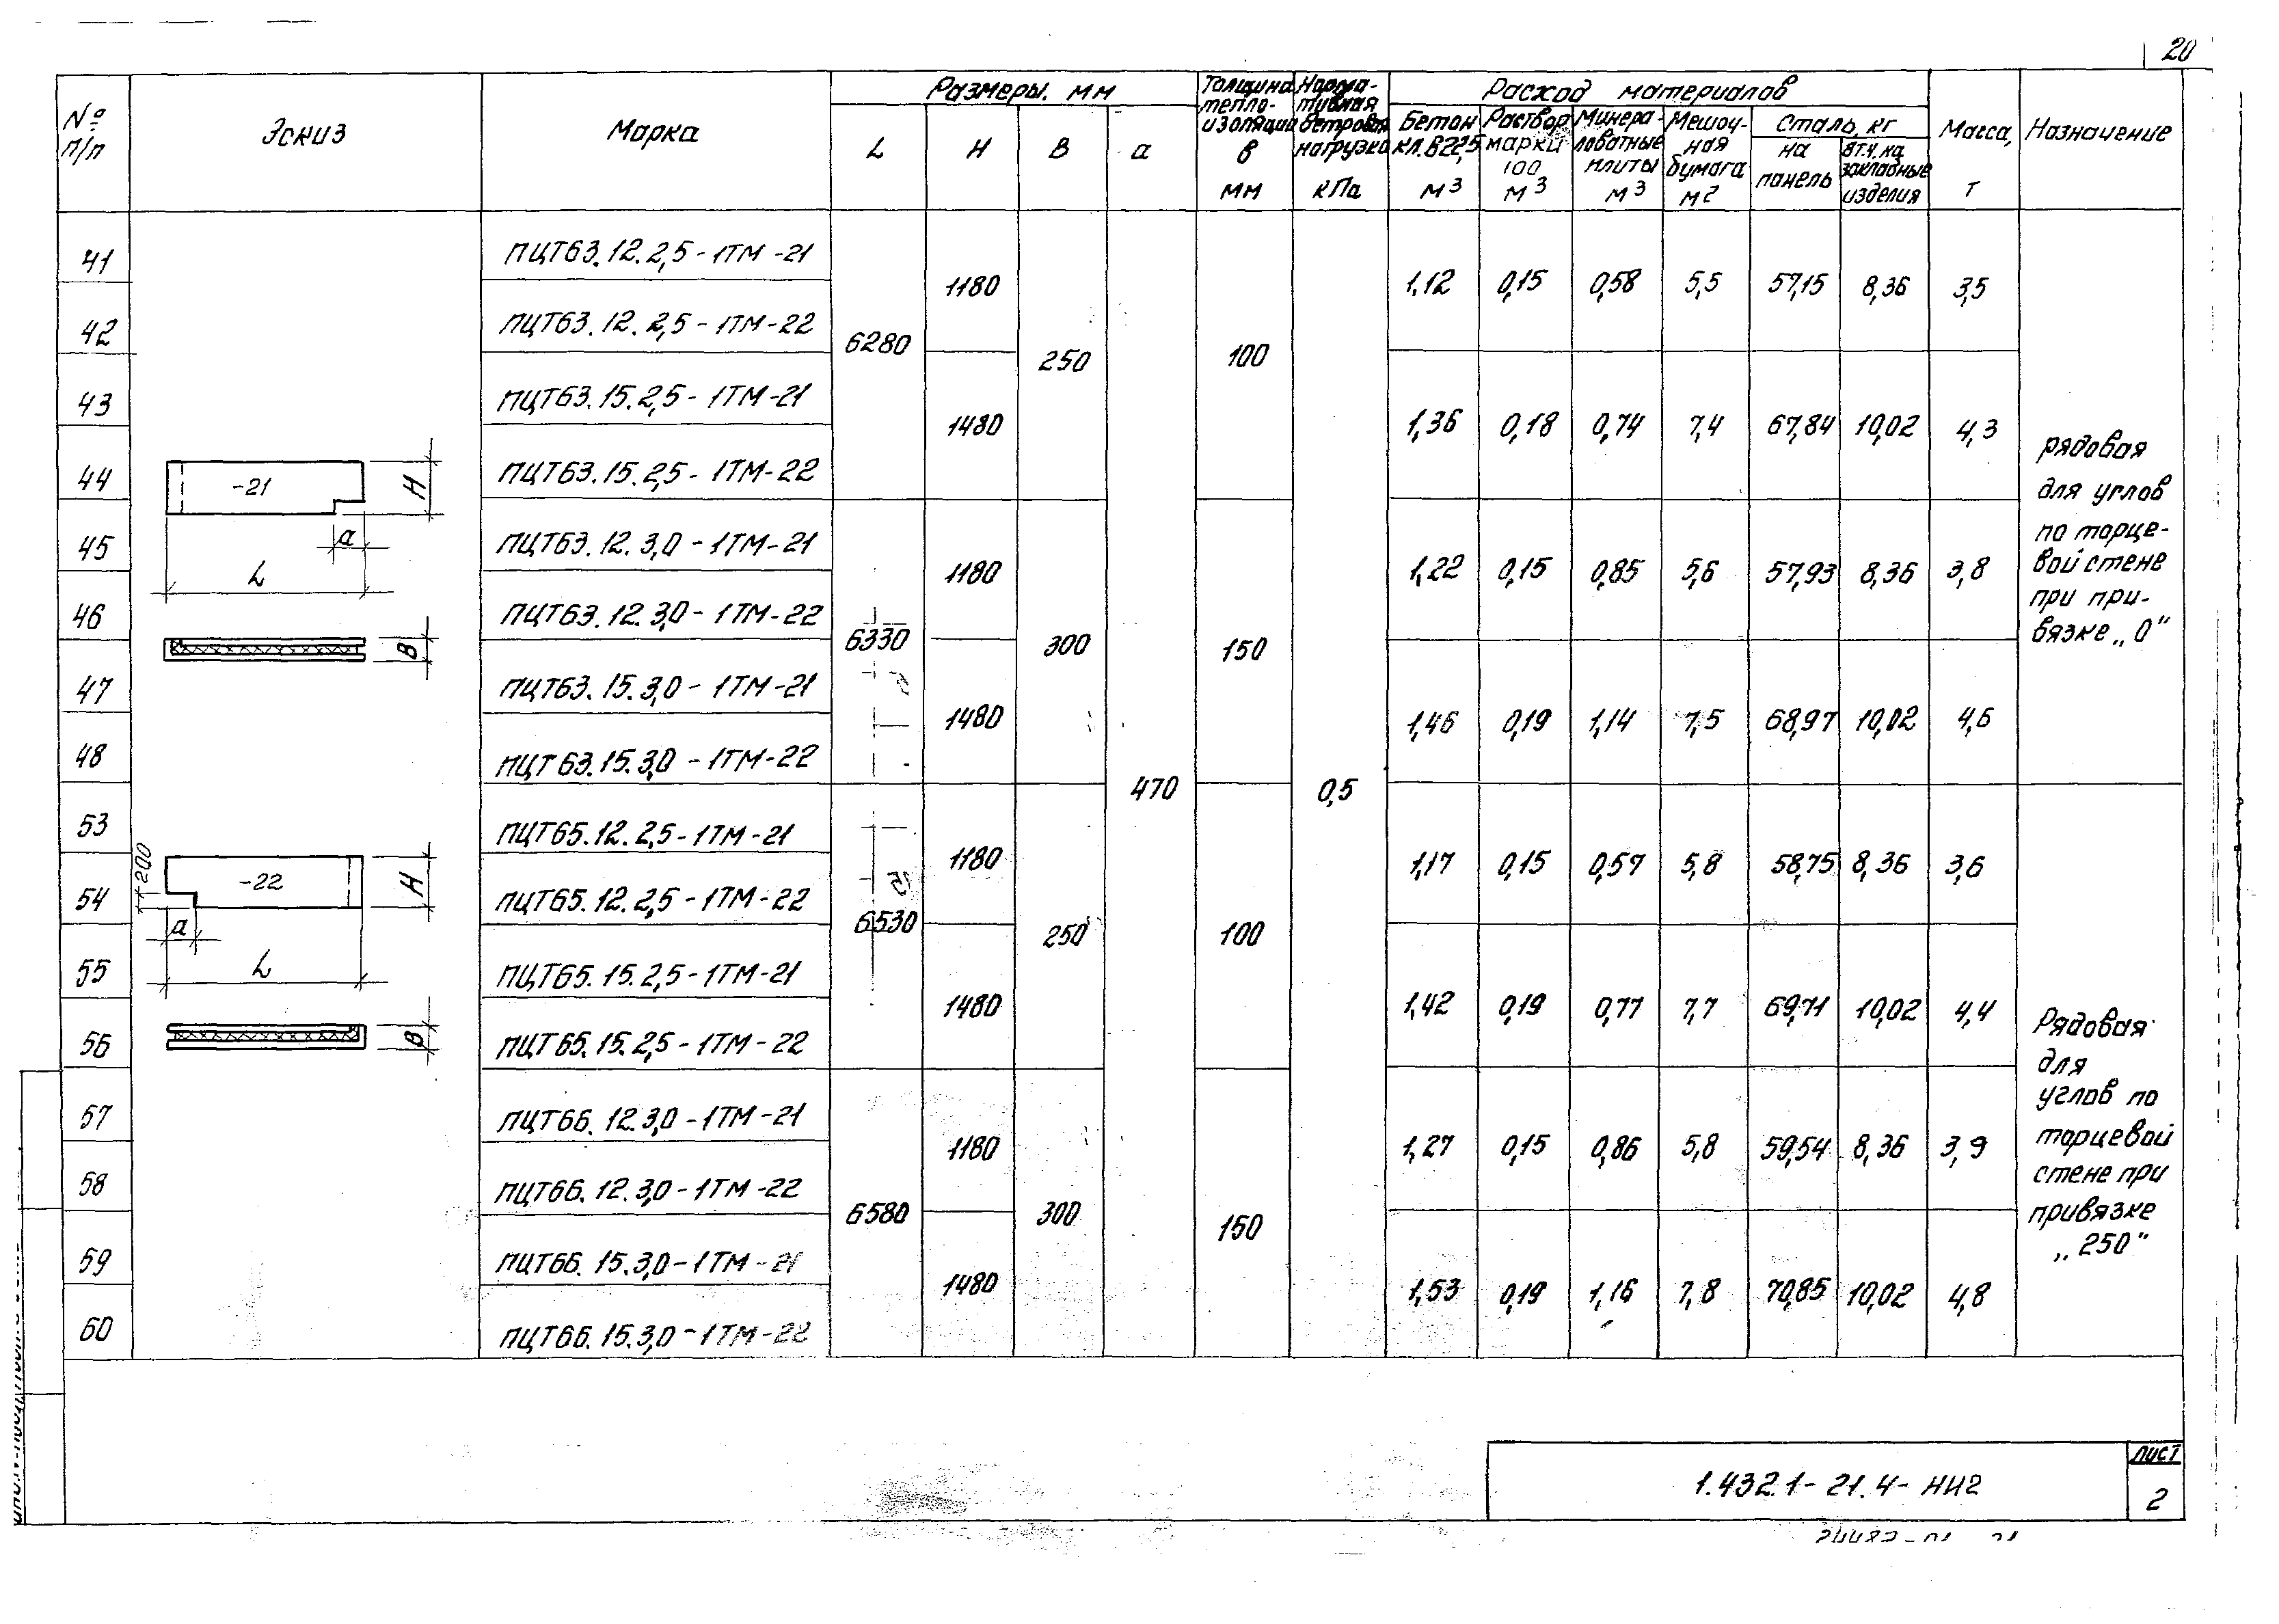 20
№ п/п
Эскиз
Марка
Размеры. мм
L H B а
Толщина тепло- изоляции в мм
Норма- тивная ветровая нагрузка кПа
Расход материалов
Бетон кл. В22,5 м3
Раствор марки 100 м3
Минера- ловатные плиты м3
Мешоч- ная бумага м2
Сталь, кг
на панель
в т.ч. на закладные изделия
Масса, т
Назначение
41 ПЦТ63.12.2,5-1ТМ-21
6280 1180 250 100 1,12 0,15 0,58 5,5 57,15 8,36 3,5
42 ПЦТ63.12.2,5-1ТМ-22
43 ПЦТ63.15.2,5-1ТМ-21
1480 1,36 0,18 0,74 7,4 67,84 10,02 4,3
44 ПЦТ63.15.2,5-1ТМ-22
рядовая
для углов
по торце-
вой стене
при при-
вязке „0"
-21
H
а
L
B
45 ПЦТ63.12.3,0-1ТМ-21
6330 1180 300 150 1,22 0,15 0,85 5,6 57,93 8,36 3,8
46 ПЦТ63.12.3,0-1ТМ-22
47 ПЦТ63.15.3,0-1ТМ-21
1480 1,46 0,19 1,14 7,5 68,97 10,02 4,6
48 ПЦТ63.15.3,0-1ТМ-22
470 0,5
53 ПЦТ65.12.2,5-1ТМ-21
6530 1180 250 100 1,17 0,15 0,57 5,8 58,75 8,36 3,6
54 ПЦТ65.12.2,5-1ТМ-22
200
-22
H
а
L
B
55 ПЦТ65.15.2,5-1ТМ-21
1480 1,42 0,19 0,77 7,7 69,71 10,02 4,4
56 ПЦТ65.15.2,5-1ТМ-22
Рядовая
для
углов по
торцевой
стене при
привязке
„250"
57 ПЦТ66.12.3,0-1ТМ-21
6580 1180 300 150 1,27 0,15 0,86 5,8 59,54 8,36 3,9
58 ПЦТ66.12.3,0-1ТМ-22
59 ПЦТ66.15.3,0-1ТМ-21
1480 1,53 0,19 1,16 7,8 70,85 10,02 4,8
60 ПЦТ66.15.3,0-1ТМ-22
1.432.1-21.4-НИ2
Лист
2